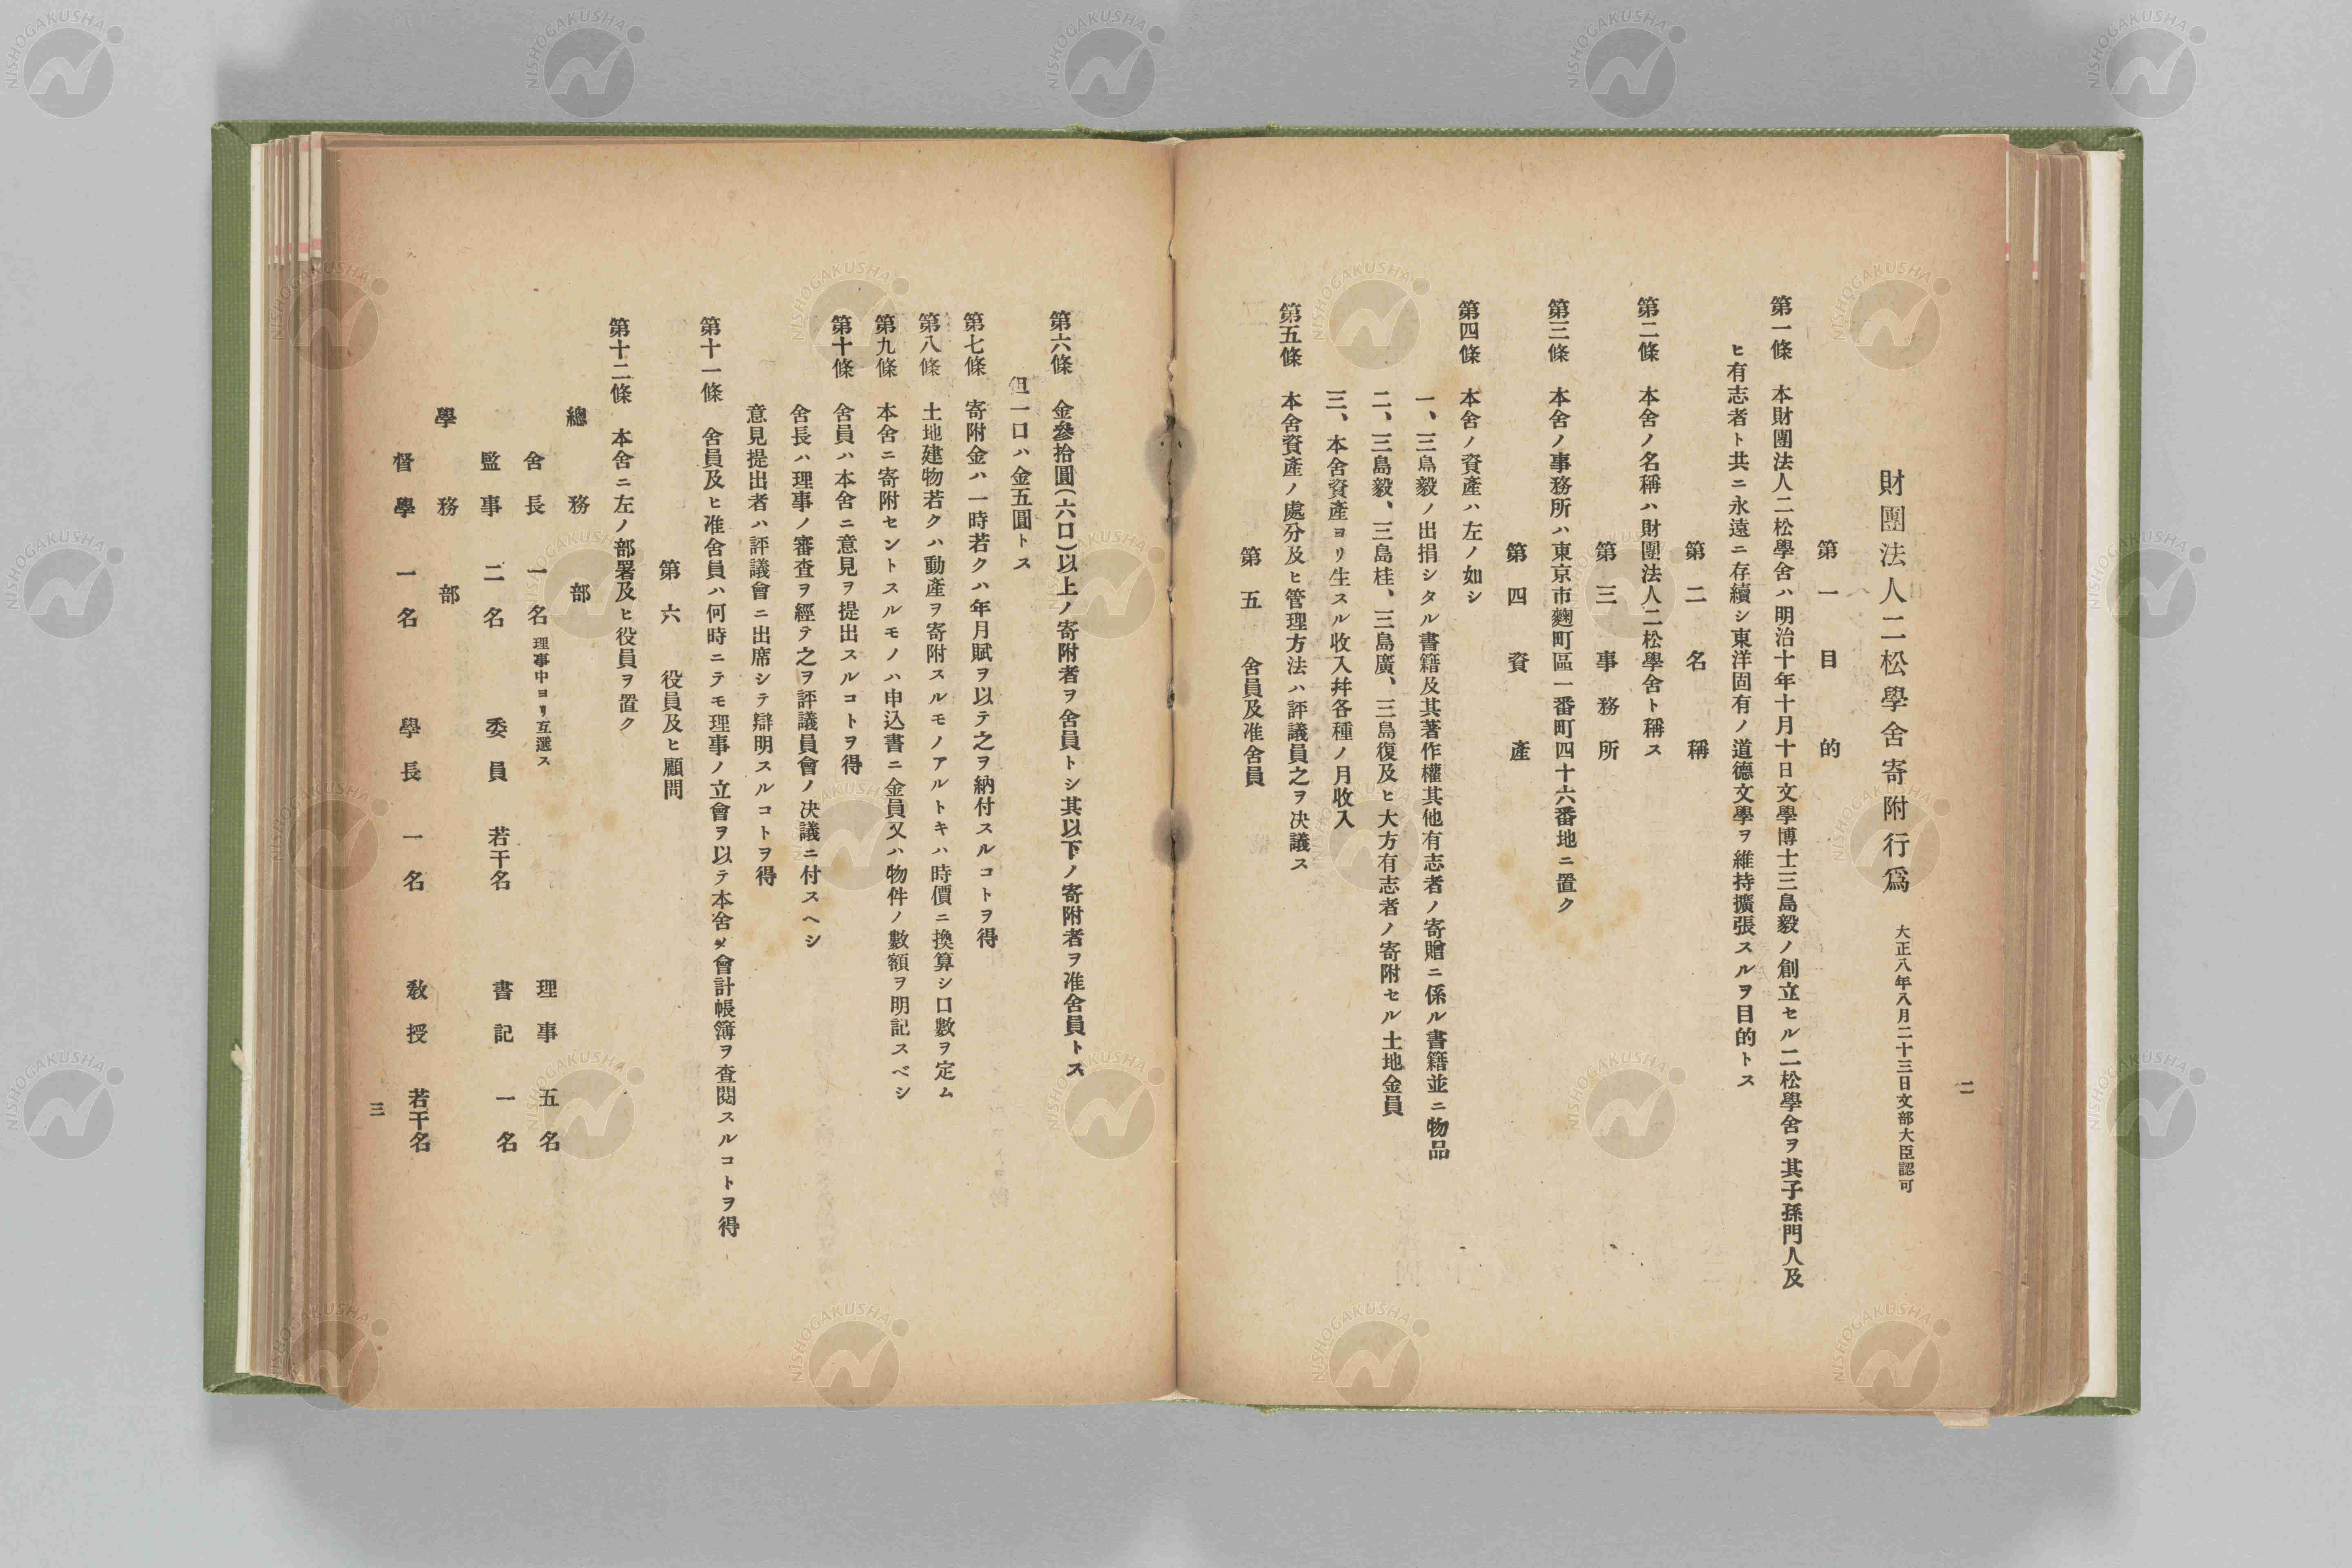 財團法人二松學舍寄附行爲 大正八年八月二十三日文部大臣認可
第一 目的
第一條 本財團法人二松學舍ハ明治十年十月十日文學博士三島毅ノ創立セル二松學舍ヲ其子孫門人及
ヒ有志者ト共ニ永遠ニ存續シ東洋固有ノ道德文學ヲ維持擴張スルヲ目的トス
第二 名稱
第二條 本舍ノ名稱ハ財團法人二松學舍ト稱ス
第三 事務所
第三條 本舍ノ事務所ハ東京市麴町區一番町四十六番地ニ置ク
第四 資產
第四條 本舍ノ資產ハ左ノ如シ
一、三島毅ノ出捐シタル書籍及其著作權其他有志者ノ寄贈ニ係ル書籍並ニ物品
二、三島毅、三島桂、三島廣、三島復及ヒ大方有志者ノ寄附セル土地金員
三、本舍資產ヨリ生スル收入幷各種ノ月收入
第五條 本舍資產ノ處分及ヒ管理方法ハ評議員之ヲ決議ス
第五 舍員及准舍員
二
第六條 金參拾圓(六口)以上ノ寄附者ヲ舍員トシ其以下ノ寄附者ヲ准舍員トス
但一口ハ金五圓トス
第七條 寄附金ハ一時若クハ年月賦ヲ以テ之ヲ納付スルコトヲ得
第八條 土地建物若クハ動產ヲ寄附スルモノアルトキハ時價ニ換算シ口數ヲ定ム
第九條 本舍ニ寄附セントスルモノハ申込書ニ金員又ハ物件ノ數額ヲ明記スベシ
第十條 舍員ハ本舍ニ意見ヲ提出スルコトヲ得
舍長ハ理事ノ審査ヲ經テ之ヲ評議員會ノ決議ニ付スヘシ
意見提出者ハ評議會ニ出席シテ辯明スルコトヲ得
第十一條 舍員及ヒ准舍員ハ何時ニテモ理事ノ立會ヲ以テ本舍ノ會計帳簿ヲ査閱スルコトヲ得
第六 役員及ヒ顧問
第十二條 本舍ニ左ノ部署及ヒ役員ヲ置ク
總務部
舍長 一名 理事中ヨリ互選ス 理事 五名
監事 二名 委員 若干名 書記 一名
學務部
督學 一名 學長 一名 敎授 若干名
三
NISHOGAKUSHA